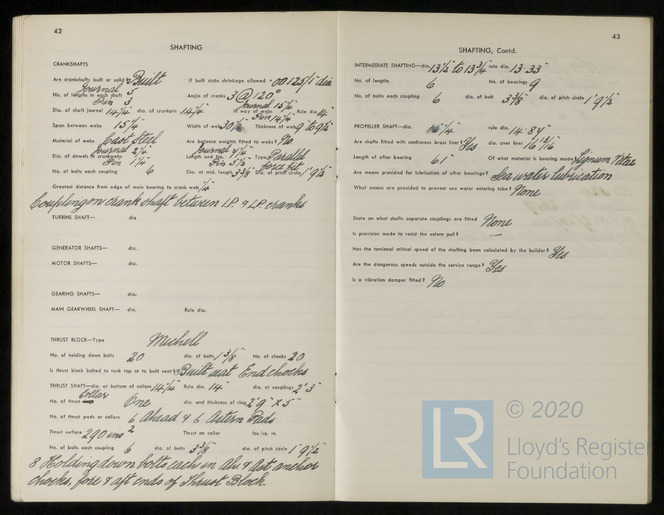 42
SHAFTING
CRANKSHAFTS
Are crankshafts built or solid? Built If built state shrinkage allowed ·00125/1" dia
No. of lengths in each shaft Journal 5 Pin 3 Angle of cranks 3 @ 120°
Dia. of shaft journal 14¼ dia. of crankpin 14¼ Rule dia.
Span between webs 15¼ Width of webs Thickness of webs 9" to 9½"
Material of webs Cast Steel Are balance weights fitted to webs? No
Dia. of dowels in crankwebs Journal Pin Length and No. Type Parallel force fit
No. of bolts each coupling 6 Dia. at mid. length 3⅜ dia. of pitch circle 1' 9½"
Greatest distance from edge of main bearing to crank web ¼
Coupling on crank shaft between I.P. & L.P. cranks
TURBINE SHAFT— dia.
GENERATOR SHAFTS— dia.
MOTOR SHAFTS— dia.
GEARING SHAFTS— dia.
MAIN GEARWHEEL SHAFT— dia. Rule dia.
THRUST BLOCK—Type Michell
No. of holding down bolts 20 dia. of bolts 1⅜ No. of chocks 20
Is thrust block bolted to tank top or to built seat? Built seat End chocks
THRUST SHAFT—dia. at bottom of collars 14¼ Rule dia. 14" dia. of couplings 2' 3"
No. of thrust collar One dia. and thickness of ring 2' 9" x 5"
No. of thrust pads or collars 6 Ahead & 6 Astern Pads
Thrust surface 290 ins² Thrust on collar lbs./sq. in.
No. of bolts each coupling 6 dia. of bolts 3⅜ dia. of pitch circle 1' 9½"
8 Holding down bolts each in & Aft anchor
chocks, fore & aft ends of Thrust Block
43
SHAFTING, Contd.
INTERMEDIATE SHAFTING—dia. 13½ to 13¾ rule dia. 13·33"
No. of lengths 6 No. of bearings 9
No. of bolts each coupling 6 dia. of bolt 3⅜ dia. of pitch circle 1' 9½
PROPELLER SHAFT—dia. rule dia. 14·84"
Are shafts fitted with continuous brass liner? Yes dia. over liner
Length of after bearing 61" Of what material is bearing made? Lignum Vitae
Are means provided for lubrication of after bearings? Sea water lubrication
What means are provided to prevent sea water entering tube? None
State on what shafts separate couplings are fitted None
Is provision made to resist the astern pull? —
Has the torsional critical speed of the shafting been calculated by the builder? Yes
Are the dangerous speeds outside the service range? Yes
Is a vibration damper fitted? No
LR
© 2020
Lloyd's Register
Foundation